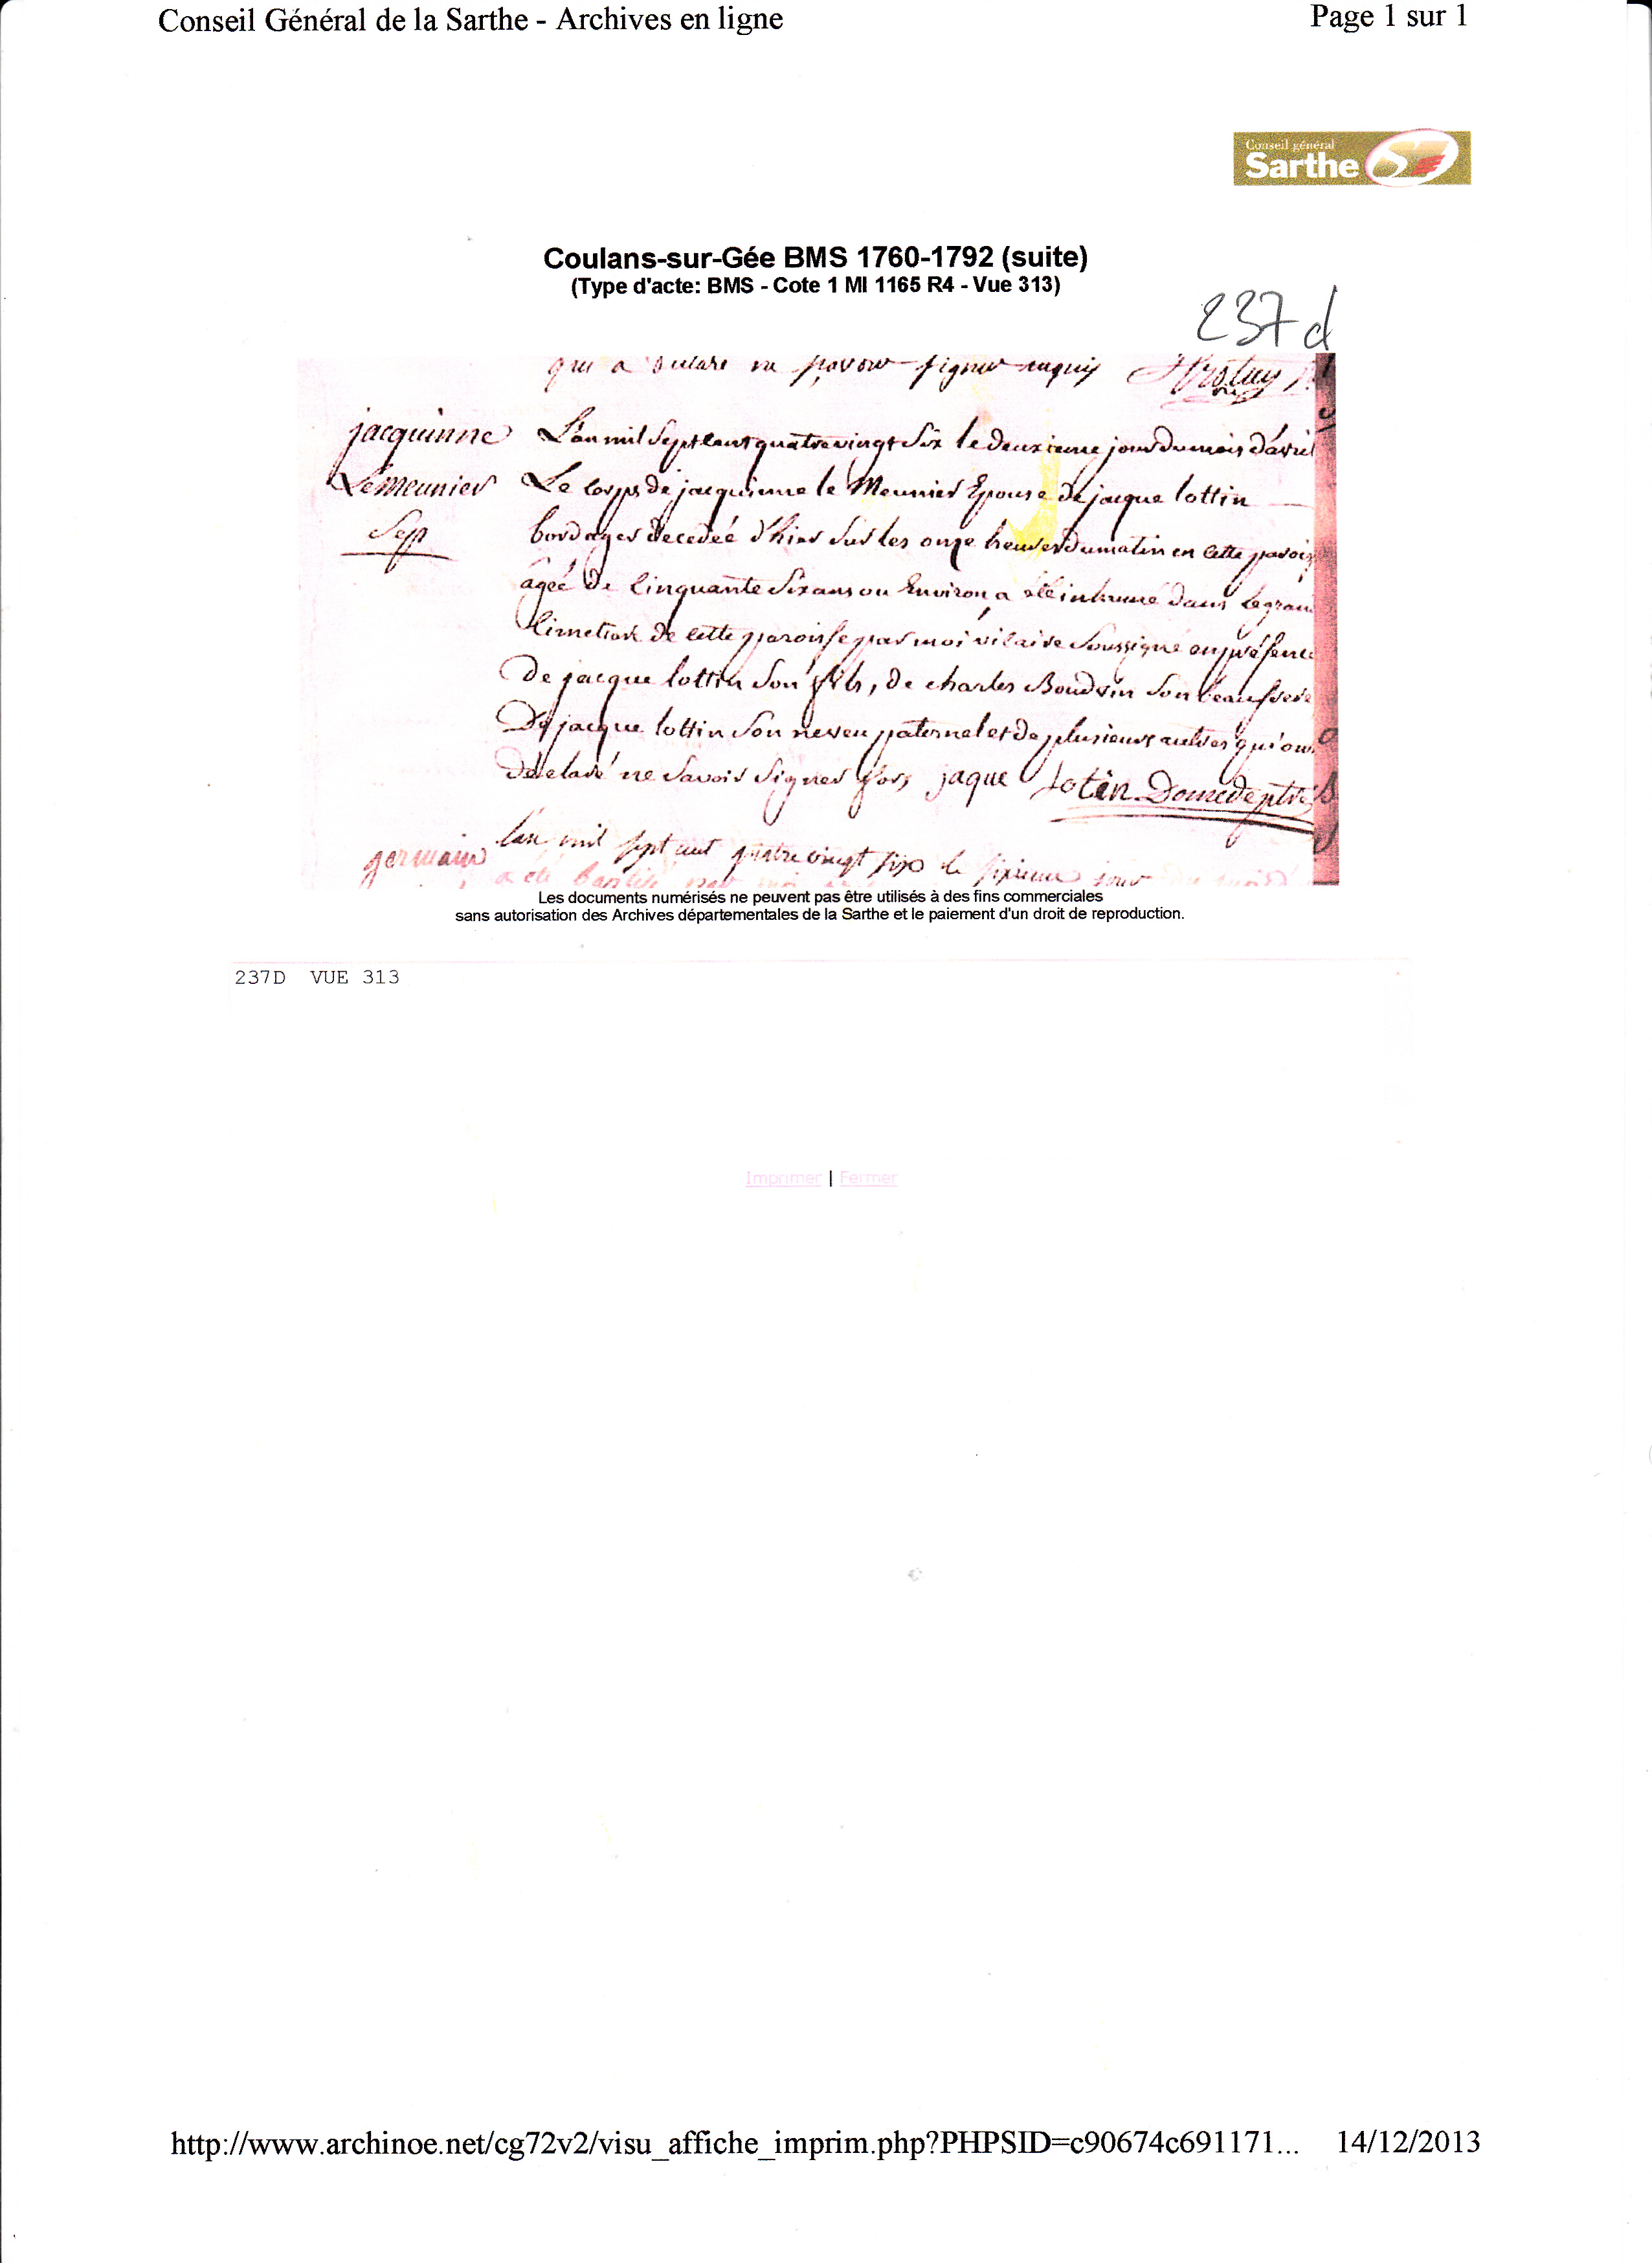 Conseil Général de la Sarthe - Archives en ligne Page 1 sur 1
Conseil général
Sarthe
Coulans-sur-Gée BMS 1760-1792 (suite)
(Type d'acte: BMS - Cote 1 MI 1165 R4 - Vue 313)
237 d
qui a declaré ne pavoir signer enquis
jacquinne
Le Meunier
Sep
L'an mil Sept cent quatre vingt Six le deuxieme jour du mois d'avril
Le corps de jacquinne le Meunier Epouse de jacque lottin
bordager decedéé d'hier sur les onze heures du matin en cette parois
ageé de cinquante Six ans ou Environ a été inhumé dans le gran
Cimetiere de cette paroisse par moi vicaire Soussigné en présence
De jacque lottin Son fils, de charles Boudvin Son beau frere
De jacque lottin Son neveu paternel et de plusieurs autres qui ont
déclaré ne Savoir Signer fors jaque Lotin
germain
L'an mil sept cent quatre vingt six le sixieme jour du mois
a été
Les documents numérisés ne peuvent pas être utilisés à des fins commerciales
sans autorisation des Archives départementales de la Sarthe et le paiement d'un droit de reproduction.
237D VUE 313
Imprimer | Fermer
http://www.archinoe.net/cg72v2/visu_affiche_imprim.php?PHPSID=c90674c691171... 14/12/2013